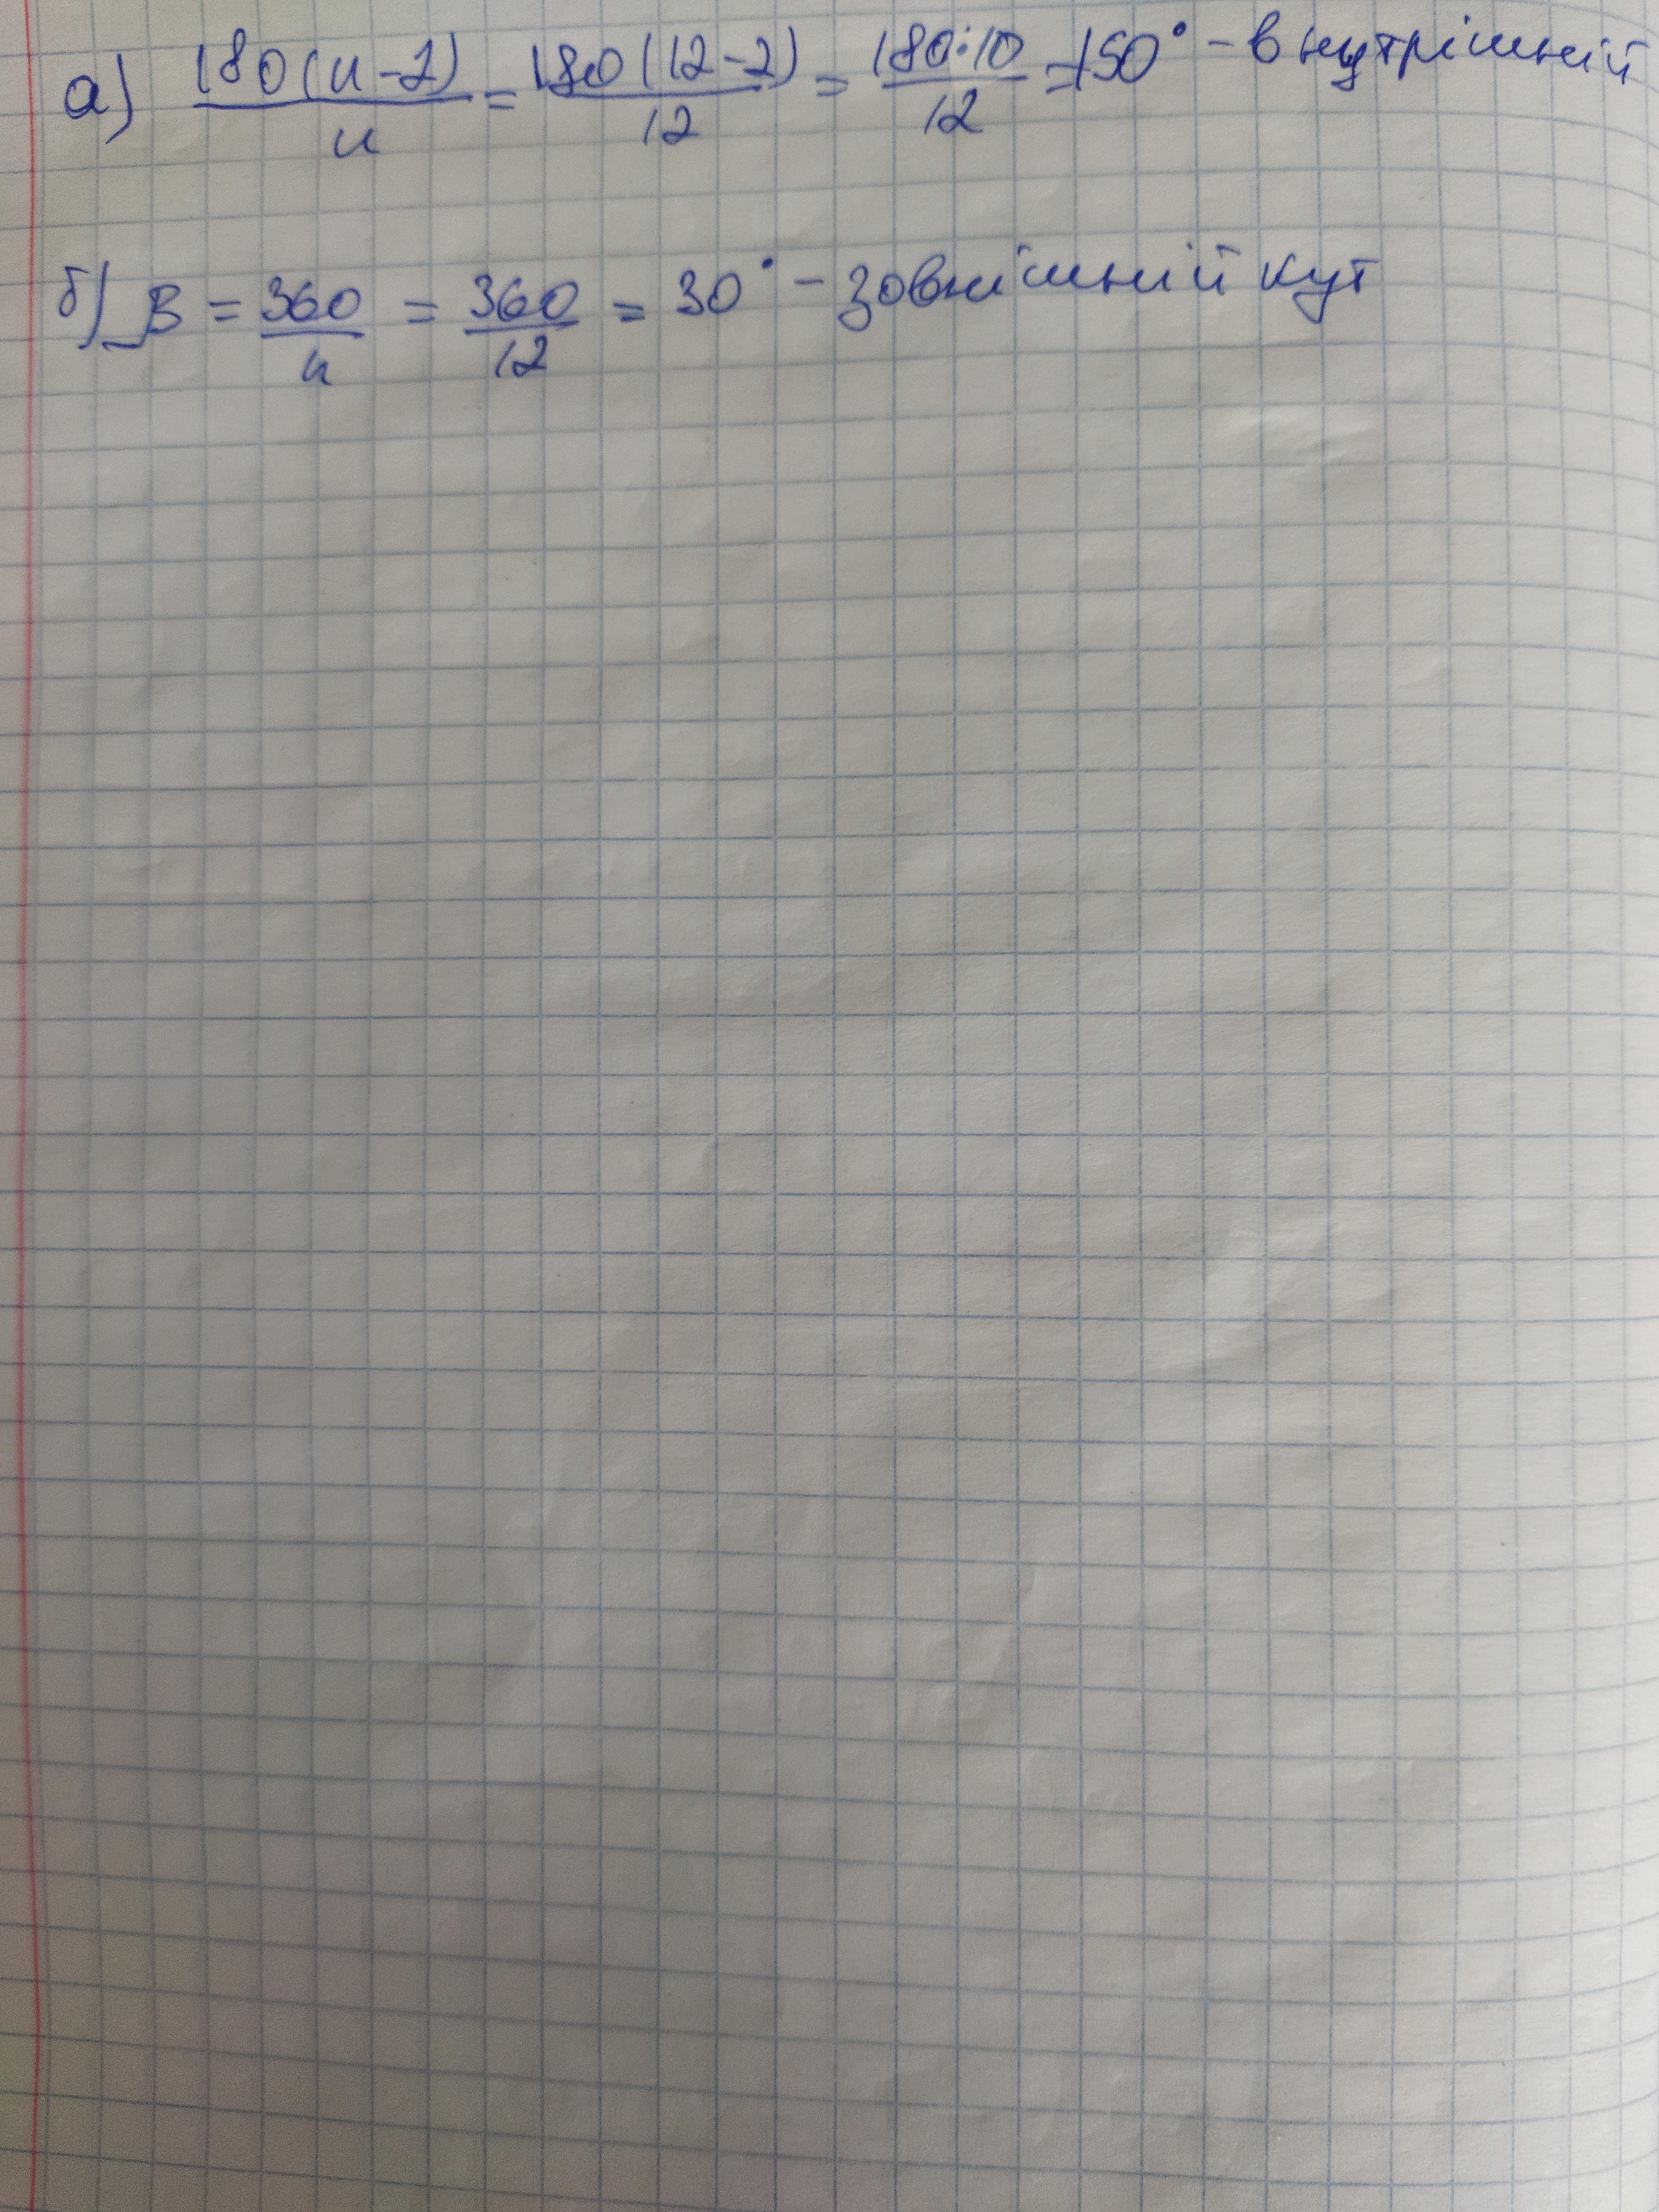 а) 180(n-2)/n = 180(12-2)/12 = 180·10/12 = 150° - внутрішній
б) β = 360/n = 360/12 = 30° - зовнішній кут